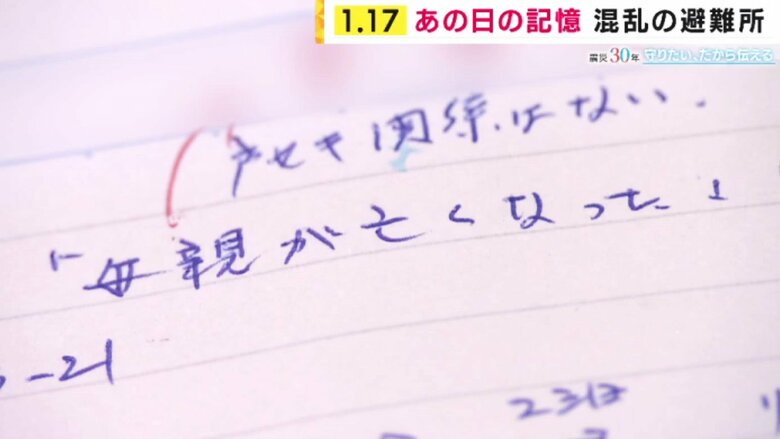 1.17 あの日の記憶 混乱の避難所
震災30年 守りたい、だから伝える
関係はない.
「母親が亡くなった」
-21